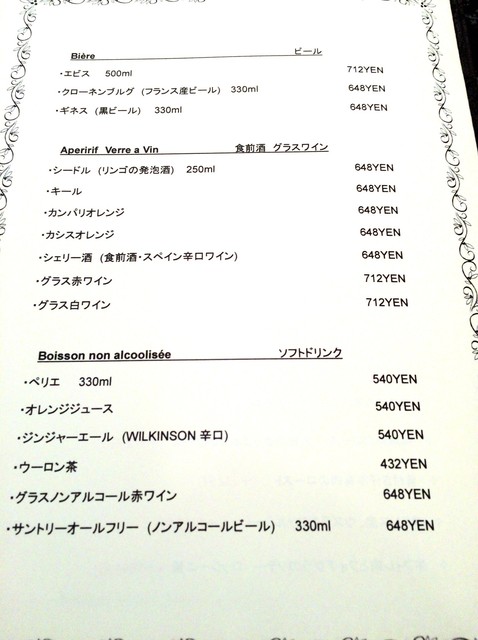 Bière ビール
・エビス 500ml 712YEN
・クローネンブルグ (フランス産ビール) 330ml 648YEN
・ギネス (黒ビール) 330ml 648YEN
Aperirif Verre a Vin 食前酒 グラスワイン
・シードル (リンゴの発泡酒) 250ml 648YEN
・キール 648YEN
・カンパリオレンジ 648YEN
・カシスオレンジ 648YEN
・シェリー酒 (食前酒・スペイン辛口ワイン) 648YEN
・グラス赤ワイン 712YEN
・グラス白ワイン 712YEN
Boisson non alcoolisée ソフトドリンク
・ペリエ 330ml 540YEN
・オレンジジュース 540YEN
・ジンジャーエール (WILKINSON 辛口) 540YEN
・ウーロン茶 432YEN
・グラスノンアルコール赤ワイン 648YEN
・サントリーオールフリー (ノンアルコールビール) 330ml 648YEN